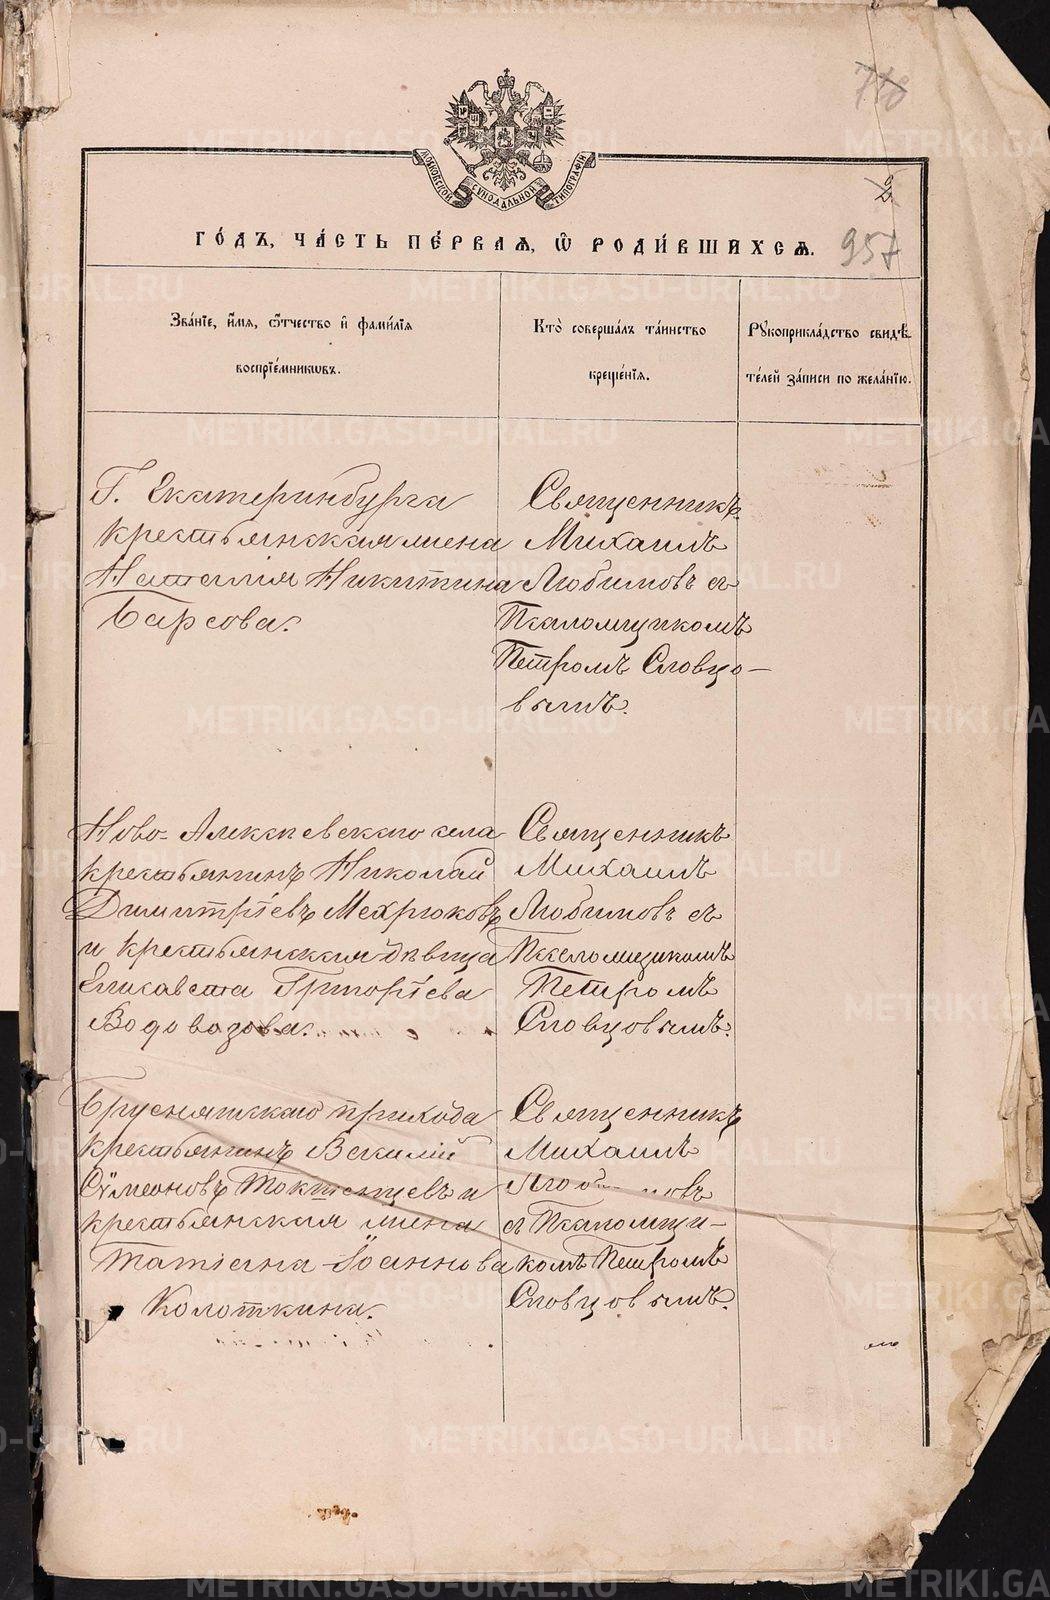 710
2
МОСКОВСКОЙ СѴНОДАЛЬНОЙ ТИПОГРАФІИ
ГО́ДЪ, ЧА́СТЬ ПЕ́РВАЯ, Ѡ҆ РОДИ́ВШИХСЯ.
957
Зва́нїе, и҆́мя, ѻ҆́тчество и҆ фами́лїя
воспрїе́мникѡвъ.
Кто̀ соверша́лъ та́инство
креще́нїя.
Рꙋкоприкла́дство свидѣ́-
те́лей за́писи по жела́нїю.
Г. Екатеринбурга
крестьянская жена
Наталія Никитина
Барсова.
Священникъ
Михаилъ
Любимовъ съ
Псаломщикомъ
Петромъ Словцо-
вымъ.
Ново-Алексѣевскаго села
крестьянинъ Николай
Димитріевъ Мехрюковъ
и крестьянская дѣвица
Елисавета Григоріева
Водовозова.
Священникъ
Михаилъ
Любимовъ съ
Псаломщикомъ
Петромъ
Словцовымъ.
Бруснятскаго прихода
крестьянинъ Василій
Сѵмеоновъ Токменцевъ и
крестьянская жена
Татіана Іоаннова
Колоткина.
Священникъ
Михаилъ
съ Псаломщи-
комъ Петромъ
Словцовымъ.
METRIKI.GASO-URAL.RU